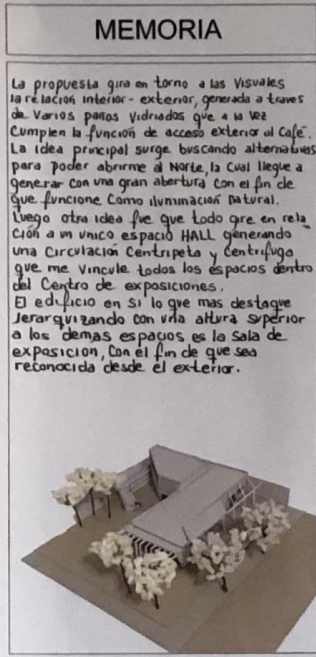 MEMORIA
La propuesta gira en torno a las Visuales
la relación interior-exterior, generada a traves
de Varios paños Vidriados que a la vez
Cumplen la función de acceso exterior al Café.
La idea principal surge buscando alternativas
para poder abrirme al Norte, la Cual llegue a
generar con una gran abertura con el fin de
que funcione Como iluminación natural.
Luego otra idea fue que todo gire en rela
ción a un unico espacio HALL generando
una Circulación Centripeta y Centrifuga
que me vincule todos los espacios dentro
del Centro de exposiciones.
El edificio en si lo que mas destaque
Jerarquizando con una altura superior
a los demas espacios es la Sala de
exposición, Con el fin de que sea
reconocida desde el exterior.